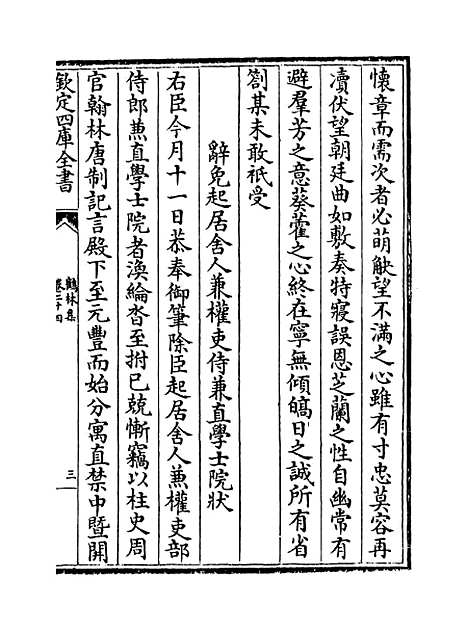 懷章而需次者必萌觖望不滿之心雖有寸忠莫容再
瀆伏望朝廷曲如敷奏特寢誤恩芝蘭之性自幽常有
避羣芳之意葵藿之心終在寧無傾皜日之誠所有省
劄某未敢祇受
辭免起居舍人兼權吏侍兼直學士院狀
右臣今月十一日恭奉御筆除臣起居舍人兼權吏部
侍郎兼直學士院者渙綸沓至拊已兢慚竊以柱史周
官翰林唐制記言殿下至元豐而始分寓直禁中暨開
欽定四庫全書
鶴林集
卷二十四
三